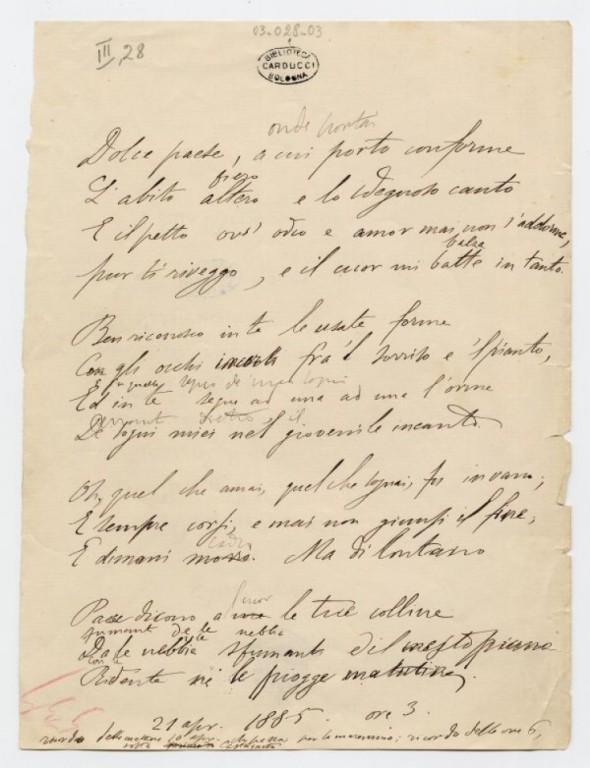 03-028-03
III, 28
BIBLIOTECA
CARDUCCI
BOLOGNA
onde portai
Dolce paese, a cui porto conforme
fiero
L'abito altero e lo sdegnoso canto
E il petto ov' odio e amor mai non s'addorme,
balza
pur ti riveggo, e il cuor mi batte in tanto.
Ben riconosco in te le usate forme
Con gli occhi incerti fra 'l sorriso e 'l pianto,
E in quelle seguo de' miei sogni
Ed in te seguo ad una ad una l'orme
erranti dietro il
De' sogni miei nel giovenile incanto.
Oh, quel che amai, quel che sognai, fu in vano;
E sempre corsi, e mai non giunsi il fine;
cadrò
E dimani morrò. Ma di lontano
cuor
Pace dicono a me le tue colline
sfumanti de le nebbie
Da le nebbie sfumanti e il mesto piano
con le
Ridente ne le piogge mattutine.
21 apr. 1885. ore 3.
ricordo della mattina 10 apr. per la maremma; ricordo delle ore 6,